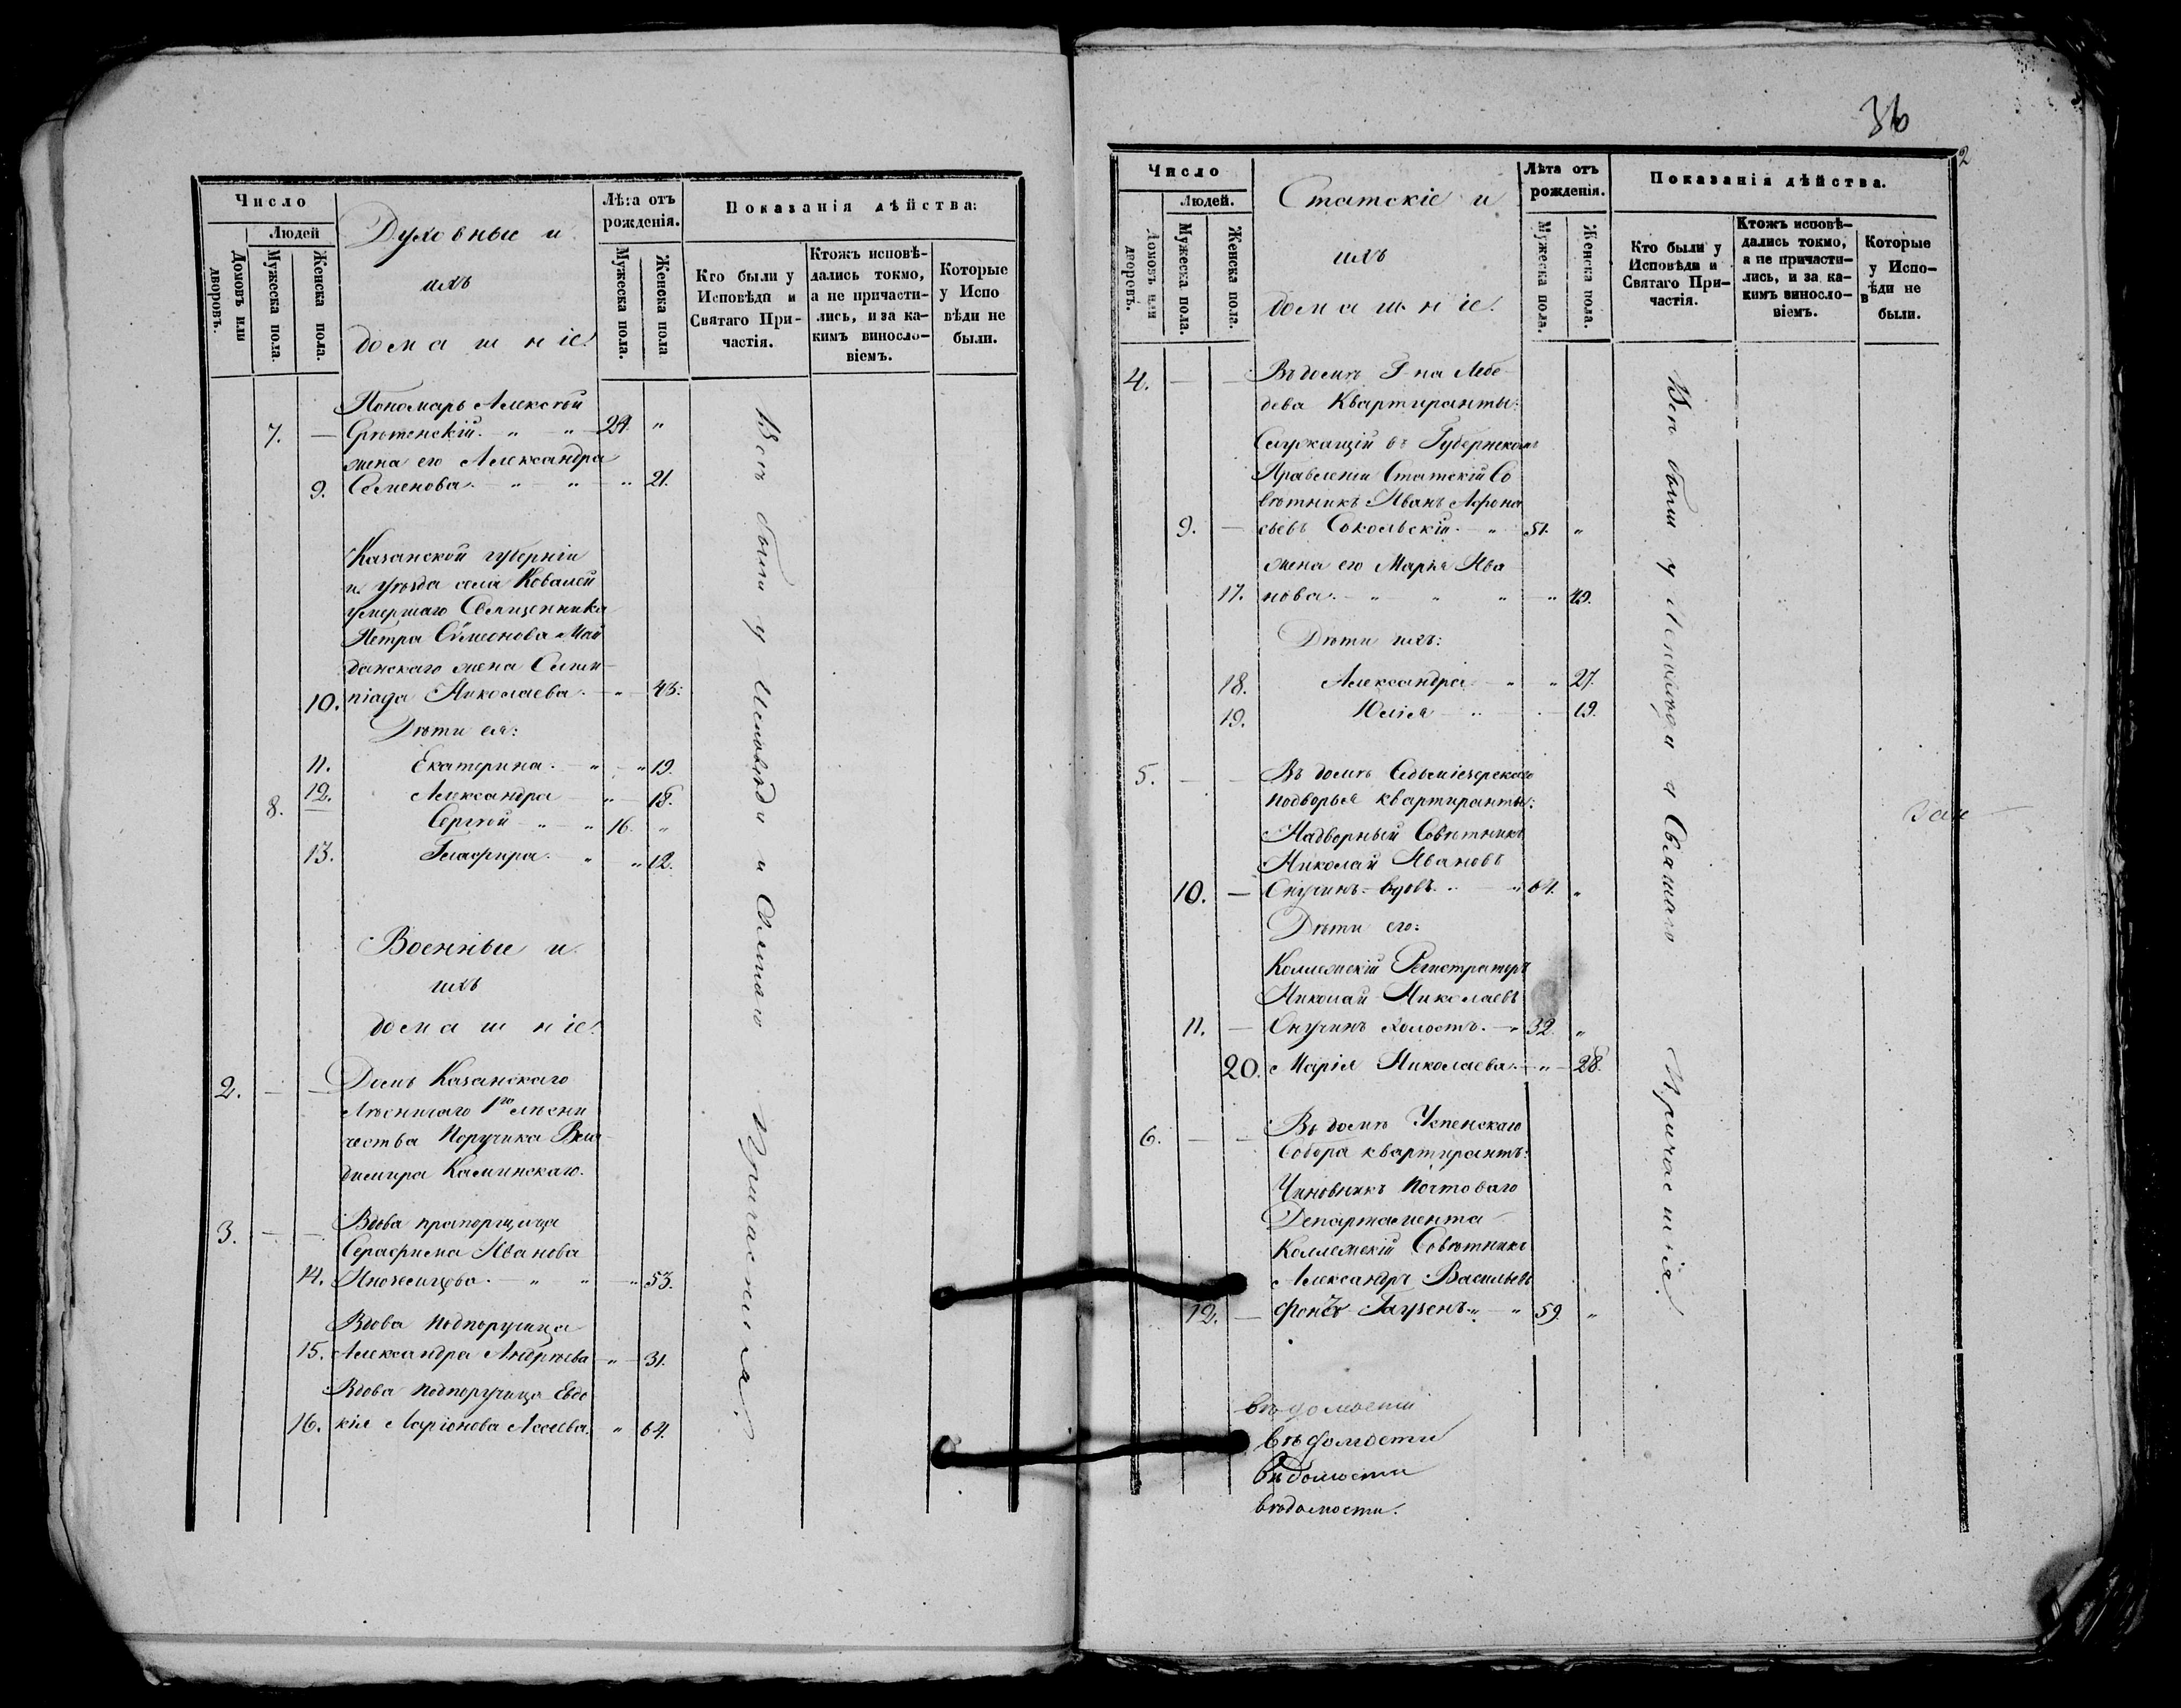 Число
Людей
Домовъ или дворовъ.
Мужеска пола.
Женска пола.
Духовные и
ихъ
домашніе:
Лѣта отъ рожденія.
Мужеска пола.
Женска пола
Показанія дѣйства:
Кто были у Исповѣди и Святаго Причастія.
Ктожъ исповѣ-
дались токмо,
а не причасти-
лись, и за ка-
кимъ виносло-
віемъ.
Которые
у Испо
вѣди не
были.
Пономарь Алексѣй
7. — Срѣтенскій. " " 29. "
жена его Александра
9. Семенова. " " " 21.
Казанской губерніи
и уѣзда села Ковалей
умершаго Священника
Петра Симеонова Май
данскаго жена Олим-
10. піада Николаева. " 43:
Дѣти ея:
11. Екатерина. " " 19.
12. Александра " 18.
8. Сергѣй " " 16. "
13. Глафира. " " 12.
Военные и
ихъ
домашніе:
2. — — Домъ Казанскаго
Лѣсничаго 1го лесни
чества Поручика Вла
димира Каминскаго.
3. — — Вдова прапорщица
Серафима Иванова
14. " " " 53.
Вдова подпоручица
15. Александра Андрѣева " 31.
Вдова подпоручица Евдо
16. кія Ларіонова " 64.
Всѣ были у Исповѣди и Святаго Причастія.
36
2
Число
Людей.
Домовъ или дворовъ.
Мужеска пола.
Женска пола.
Статскіе и
ихъ
домашніе.
Лѣта отъ рожденія.
Мужеска пола.
Женска пола.
Показанія дѣйства.
Кто были у
Исповѣди и
Святаго При-
частія.
Ктожъ исповѣ-
дались токмо,
а не причасти-
лись, и за ка-
кимъ виносло-
віемъ.
Которые
у Испо-
вѣди не
были.
4. — — Въ домѣ Г-на Лебе
дева Квартиранты:
Служащій въ Губернскомъ
Правленіи Статскій Со
вѣтникъ Иванъ Афона
9. — сьевъ Сокольскій. " 51. "
жена его Марія Ива
17. нова. " " " " 49.
Дѣти ихъ:
18. Александра " " 27.
19. Юлія " 19.
5. — — Въ домѣ Седьміезерскаго
подворья квартиранты:
Надворный Совѣтникъ
Николай Ивановъ
10. — Онучинъ вдовъ. " " 64. "
Дѣти его:
Коллежскій Регистраторъ
Николай Николаевъ
11. — Онучинъ холостъ. " 32. "
20. Марія Николаева. " 28.
6. — — Въ домѣ Успенскаго
Собора квартирантъ:
Чиновникъ Почтоваго
Департамента
Коллежскій Совѣтникъ
Александръ Васильевъ
12. — Фонъ Гаузенъ. " " 59. "
Всѣ были у Исповѣди и Святаго Причастія.
вѣдомости
вѣдомости
вѣдомости
вѣдомости.